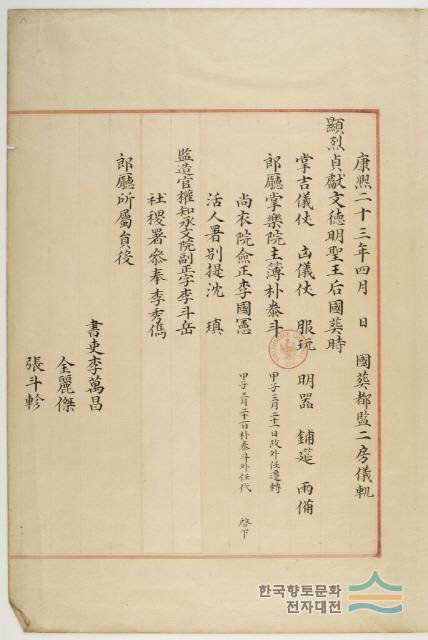 康熙二十三年四月 日 國葬都監二房儀軌
顯烈貞獻文德明聖王后國葬時
掌吉儀仗 凶儀仗 服玩 明器 鋪筵 雨備
郎廳掌樂院主簿朴泰斗 甲子三月二十一日政外任遷轉
尚衣院僉正李國憲 甲子三月二十二日朴泰斗外任代 啓下
活人署別提沈 瑱
監造官權知承文院副正字李斗岳
社稷署參奉李秀儁
郎廳所屬員役
書吏李萬昌
金麗傑
張斗軫
한국향토문화
전자대전